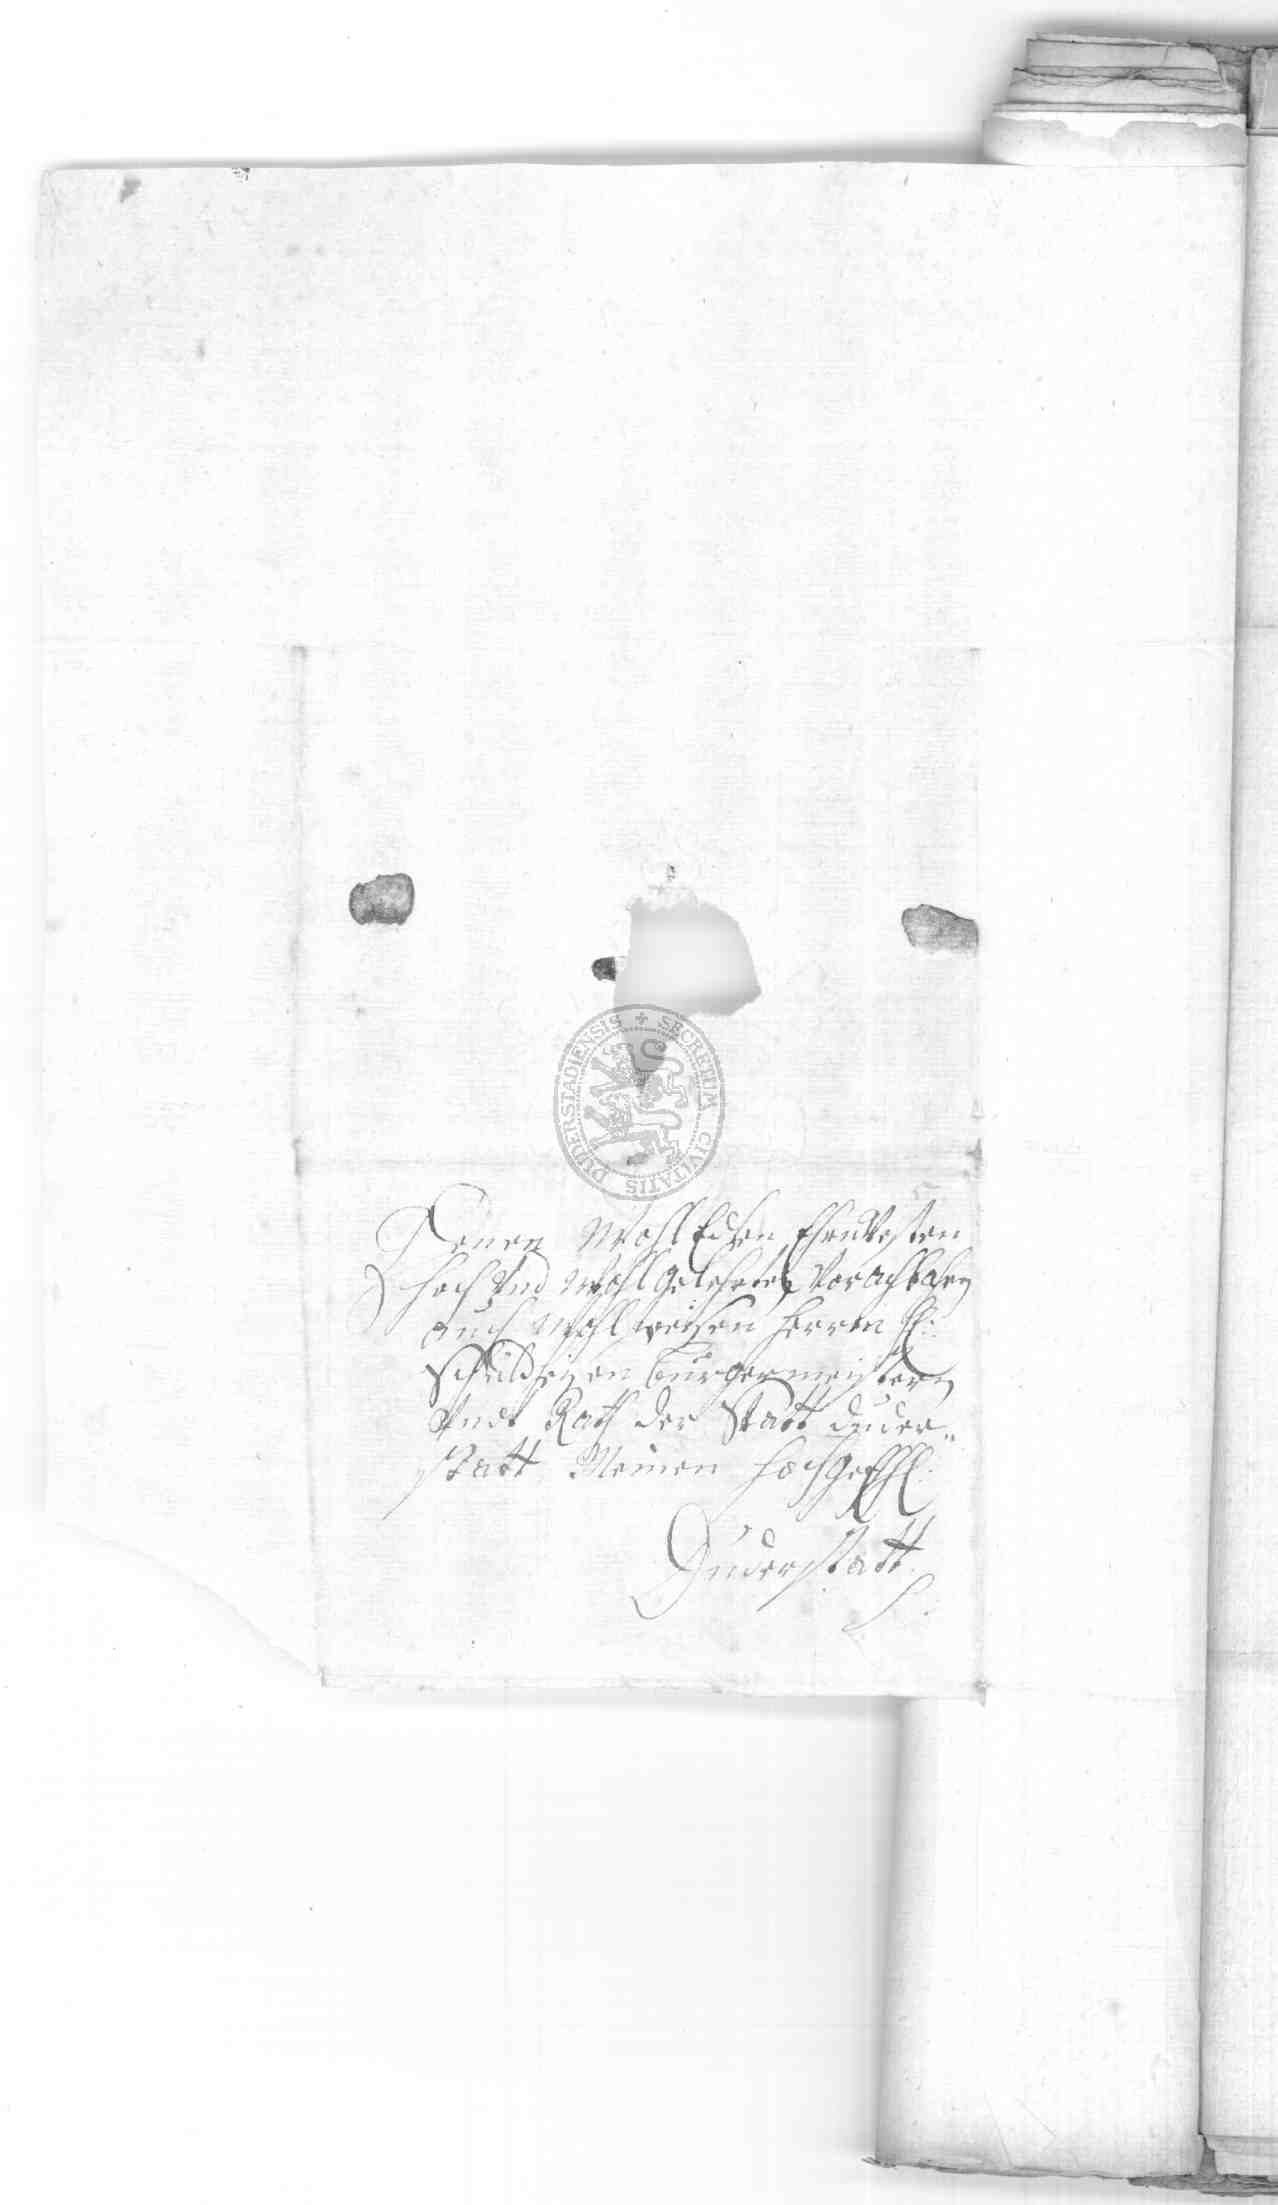 SECRETUM CIVITATIS DUDERSTADIENSIS
Denen Wohl Edlen Ehrnvesten
hoch Und Wohlgelehrten Vorachtbahren
auch Wohlweisen Herren H:
Schuldheizen Bürgermeistern
Undt Rath der Statt duder-
statt Meinen hochgeEhH:
Duderstatt